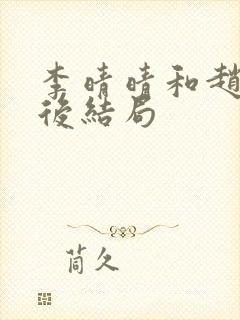 李晴晴和趙
後結局
茼久